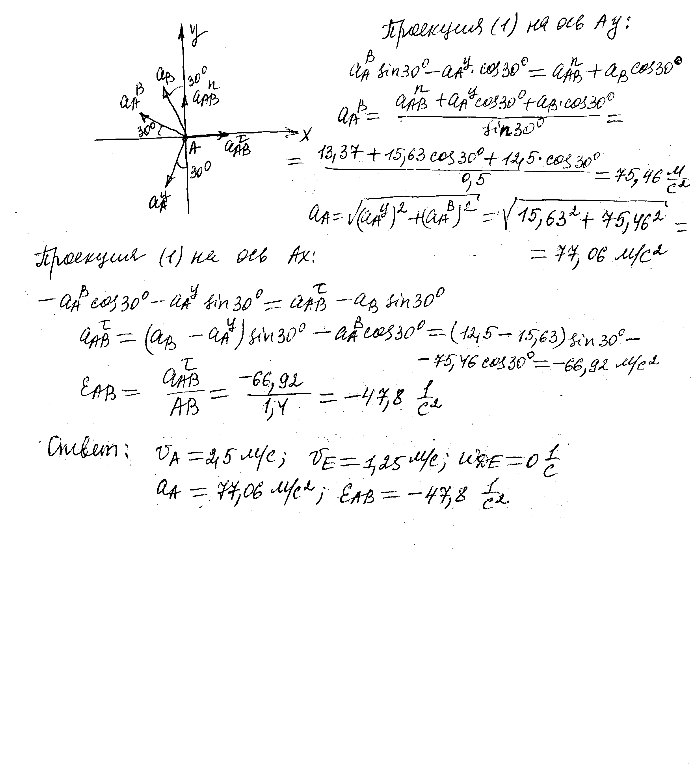 y
a_B 30°
a_A^B a_AB^n
30° A a_AB^τ x
30°
a_A^y
Проекция (1) на ось Ay:
a_A^B sin30° - a_A^y · cos30° = a_AB^n + a_B cos30°
a_A^B = (a_AB^n + a_A^y cos30° + a_B · cos30°) / sin30° =
= (13,37 + 15,63 cos30° + 12,5 · cos30°) / 0,5 = 75,46 м/с²
a_A = √((a_A^y)² + (a_A^B)²) = √(15,63² + 75,46²) =
= 77,06 м/с²
Проекция (1) на ось Ax:
-a_A^B cos30° - a_A^y sin30° = a_AB^τ - a_B sin30°
a_AB^τ = (a_B - a_A^y) sin30° - a_A^B cos30° = (12,5 - 15,63) sin30° -
- 75,46 cos30° = -66,92 м/с²
ε_AB = a_AB^τ / AB = -66,92 / 1,4 = -47,8 1/с²
Ответ: v_A = 2,5 м/с; v_E = 1,25 м/с; ω_DE = 0 1/с
a_A = 77,06 м/с²; ε_AB = -47,8 1/с²